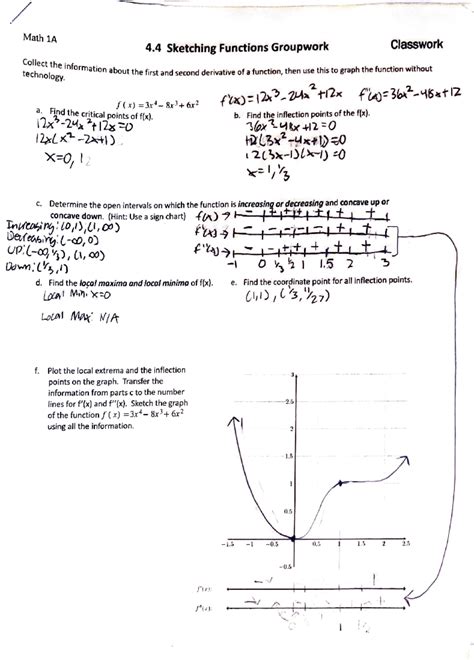 Math 1A
4.4 Sketching Functions Groupwork
Classwork
Collect the information about the first and second derivative of a function, then use this to graph the function without
technology.
f(x) = 3x⁴ – 8x³ + 6x²
f'(x)=12x³-24x²+12x
f''(x)=36x²-48x+12
a. Find the critical points of f(x).
12x³-24x²+12x=0
12x(x²-2x+1)
x=0, 1
b. Find the inflection points of the f(x).
36x²-48x+12=0
12(3x²-4x+1)=0
12(3x-1)(x-1)=0
x=1, 1/3
c. Determine the open intervals on which the function is increasing or decreasing and concave up or
concave down. (Hint: Use a sign chart)
Increasing: (0,1), (1,∞)
Decreasing: (-∞,0)
UP: (-∞,1/3), (1,∞)
Down: (1/3,1)
f(x) →
f'(x) →
f''(x) →
-1 0 1/3 1/2 1 1.5 2 3
d. Find the local maxima and local minima of f(x).
Local Min: x=0
Local Max: N/A
e. Find the coordinate point for all inflection points.
(1,1), (1/3, 11/27)
f. Plot the local extrema and the inflection
points on the graph. Transfer the
information from parts c to the number
lines for f'(x) and f''(x). Sketch the graph
of the function f(x) = 3x⁴ – 8x³ + 6x²
using all the information.
3
2.5
2
1.5
1
0.5
-1.5 -1 -0.5 0.5 1 1.5 2 2.5
-0.5
f'(x):
f''(x):